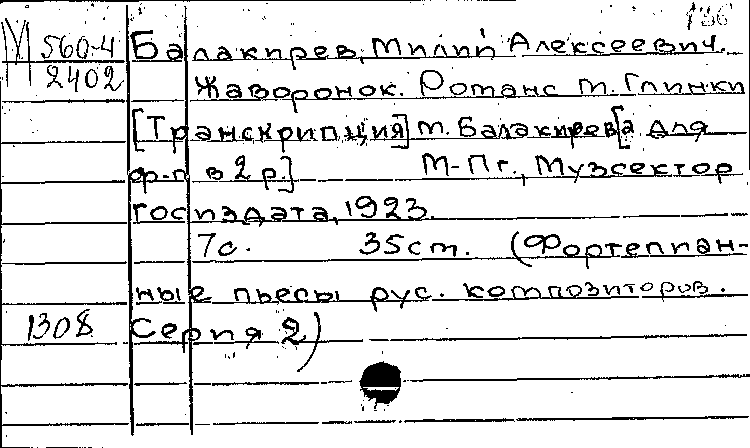 136
М 560-4 Балакирев, Милий Алексеевич.
2402 Жаворонок. Романс М. Глинки
[Транскрипция] М. Балакирев[а для
ф-п в 2 р.] М-Пг., Музсектор
Госиздата, 1923.
7с. 35см. (Фортепиан-
ные пьесы рус. композиторов.
1308 Серия 2)